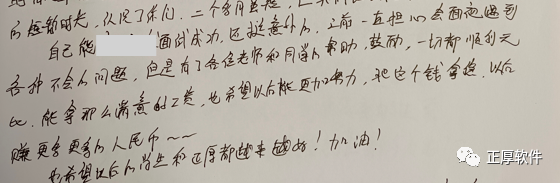 的短暂时光,认识了你们。二个月真短,
自己能面试成功,还挺意外的,之前一直担心会面试遇到
各种不会的问题,但是有了各位老师和同学的帮助,鼓励,一切都顺利完
比,能拿那么满意的工资,也希望以后能更加努力,把这个钱拿稳,以后
赚更多更多的人民币~~
也希望以后的学生和正厚都越来越好!加油!
正厚软件